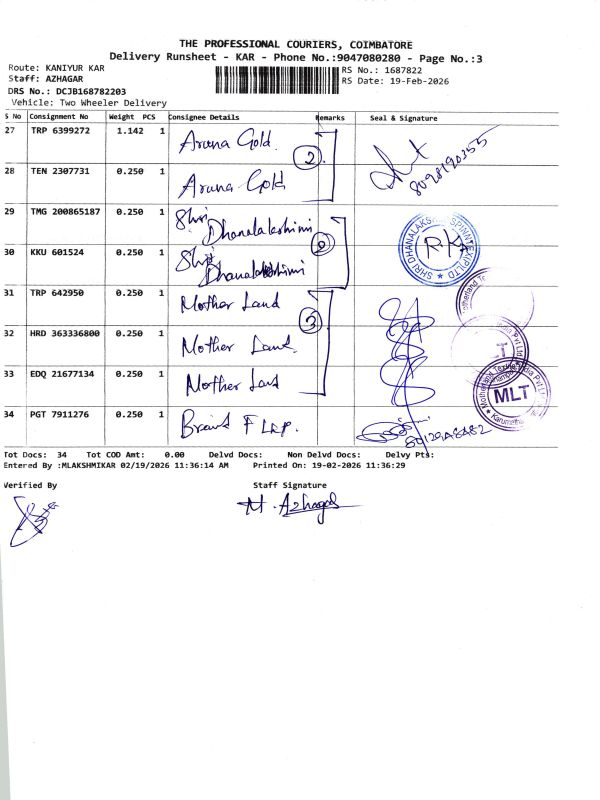 THE PROFESSIONAL COURIERS, COIMBATORE
Delivery Runsheet - KAR - Phone No.:9047080280 - Page No.:3
Route: KANIYUR KAR
Staff: AZHAGAR
DRS No.: DCJB168782203
Vehicle: Two Wheeler Delivery
RS No.: 1687822
RS Date: 19-Feb-2026
S No Consignment No Weight PCS Consignee Details Remarks Seal & Signature
27 TRP 6399272 1.142 1 Aruna Gold. 2 8098190355
28 TEN 2307731 0.250 1 Aruna Gold
29 TMG 200865187 0.250 1 Shri Dhanalakshimi 2
30 KKU 601524 0.250 1 Shri Dhanalakshimi
31 TRP 642950 0.250 1 Mother Land 3
32 HRD 363336800 0.250 1 Mother Land.
33 EDQ 21677134 0.250 1 Mother Land
34 PGT 7911276 0.250 1
SHRI DHANALAKSHMI SPINNTEX(P)LTD
RK
MLT
Tot Docs: 34 Tot COD Amt: 0.00 Delvd Docs: Non Delvd Docs: Delvy Pts:
Entered By :MLAKSHMIKAR 02/19/2026 11:36:14 AM Printed On: 19-02-2026 11:36:29
Verified By
Staff Signature
M. Azhagar